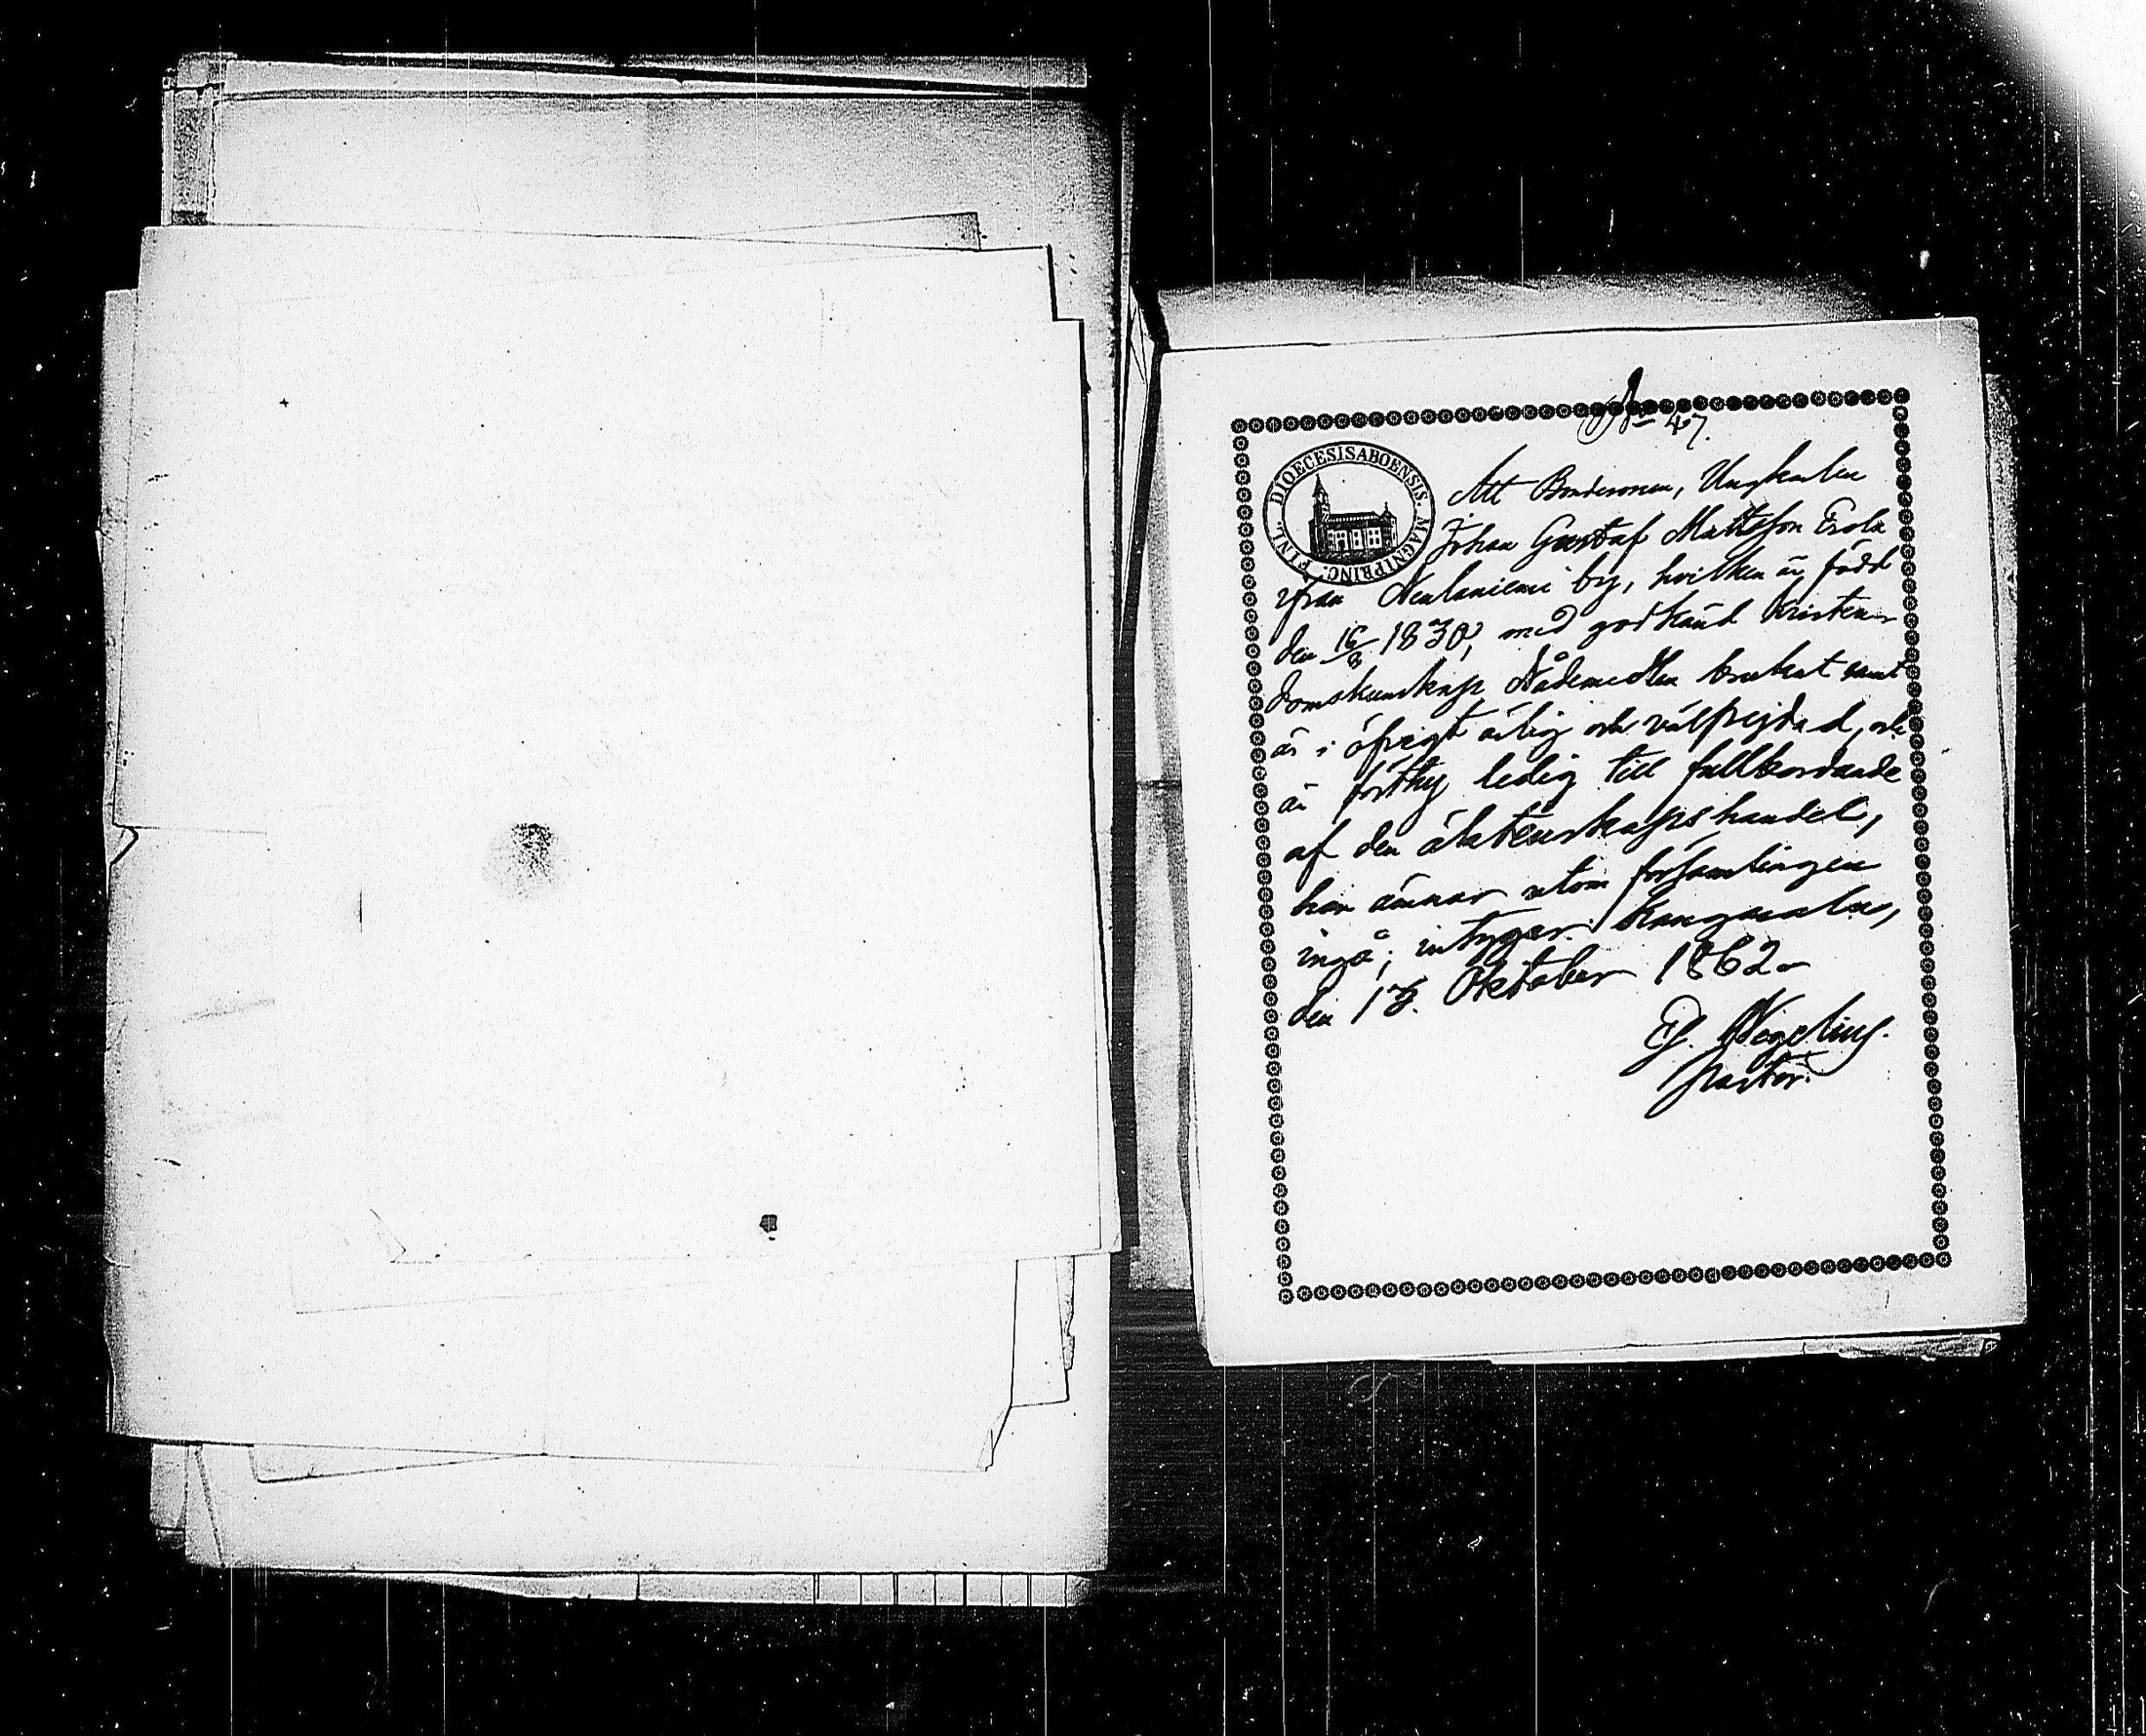 No 47.
DIOECESIS ABOENSIS. MAGNI PRINC: FINL.
Att Bondesonen, Ungkarlen
Johan Gustaf Mattsson Erola
ifrån Neulaniemi by, hvilken är född
den 16/8 1830, med godkänd kristen-
domskunskap Nådemedlen brukat samt
är i öfrigt ärlig och välfrejdad, och
är förthy ledig till fullbordande
af den äktenskapshandel,
han ämnar utom församlingen
ingå; intygar. Kangasala,
den 13. Oktober 1862.
Pastor.